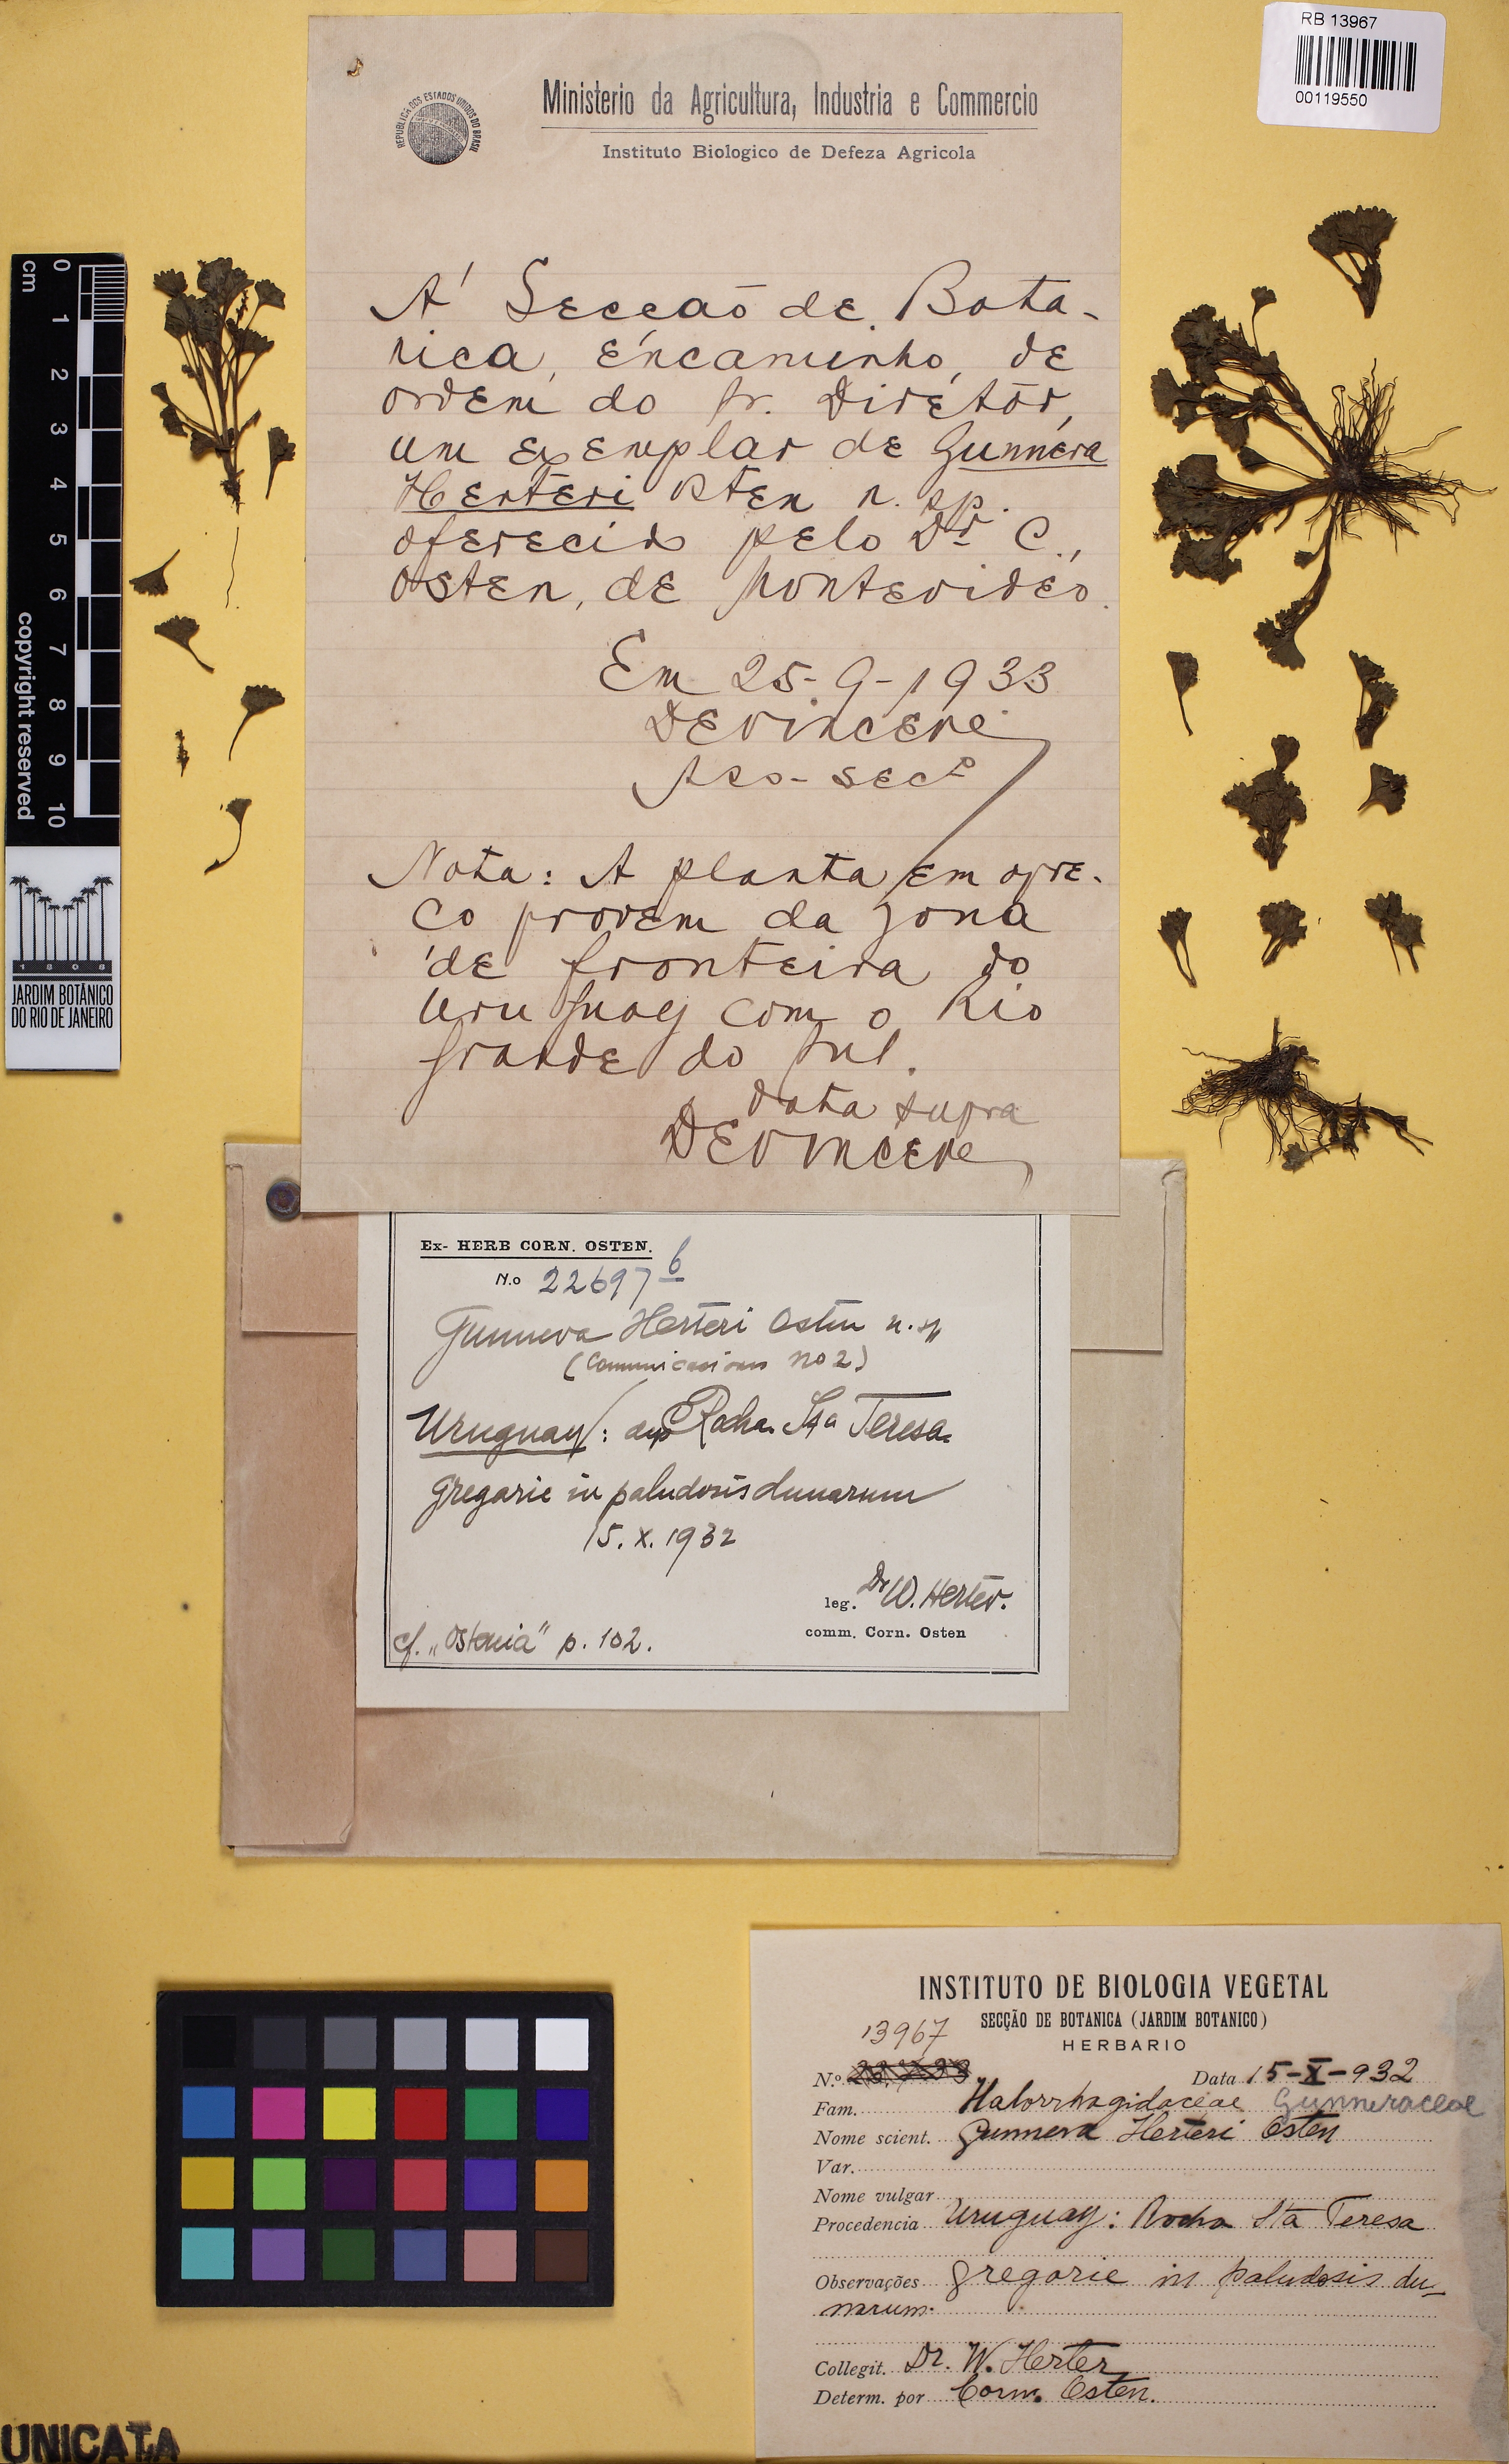 RB 13967
00119550
REPUBLICA DOS ESTADOS UNIDOS DO BRASIL
Ministerio da Agricultura, Industria e Commercio
Instituto Biologico de Defeza Agricola
A' Secção de Bota-
nica, encaminho, de
ordem do Sr. Diretor,
um exemplar de Gunnera
Herteri Osten n. sp.
oferecido pelo Dr. C.
Osten, de Montevideo.
Em 25-9-1933
Nota: A planta em apre-
ço provem da zona
de fronteira do
Uruguay com o Rio
Grande do Sul.
Data supra
cm
0
1
2
3
4
5
6
7
8
9
10
copyright reserved
1808
JARDIM BOTÂNICO
DO RIO DE JANEIRO
Ex- HERB CORN. OSTEN.
N.o 22697 b
Gunnera Herteri Osten n. sp
(Comunicaciones no 2)
Uruguay: dep Rocha Sta Teresa
gregarie in paludosis dunarum
15. X. 1932
leg. Dr W. Herter.
comm. Corn. Osten
cf. „Ostenia" p. 102.
INSTITUTO DE BIOLOGIA VEGETAL
SECÇÃO DE BOTANICA (JARDIM BOTANICO)
HERBARIO
13967
N.o Data 15-X-932
Fam. Halorrhagidaceae Gunneraceae
Nome scient. Gunnera Herteri Osten
Var.
Nome vulgar
Procedencia Uruguay: Rocha Sta Teresa
Observações gregarie in paludosis du-
narum.
Collegit. Dr. W. Herter
Determ. por Corn. Osten.
UNICATA